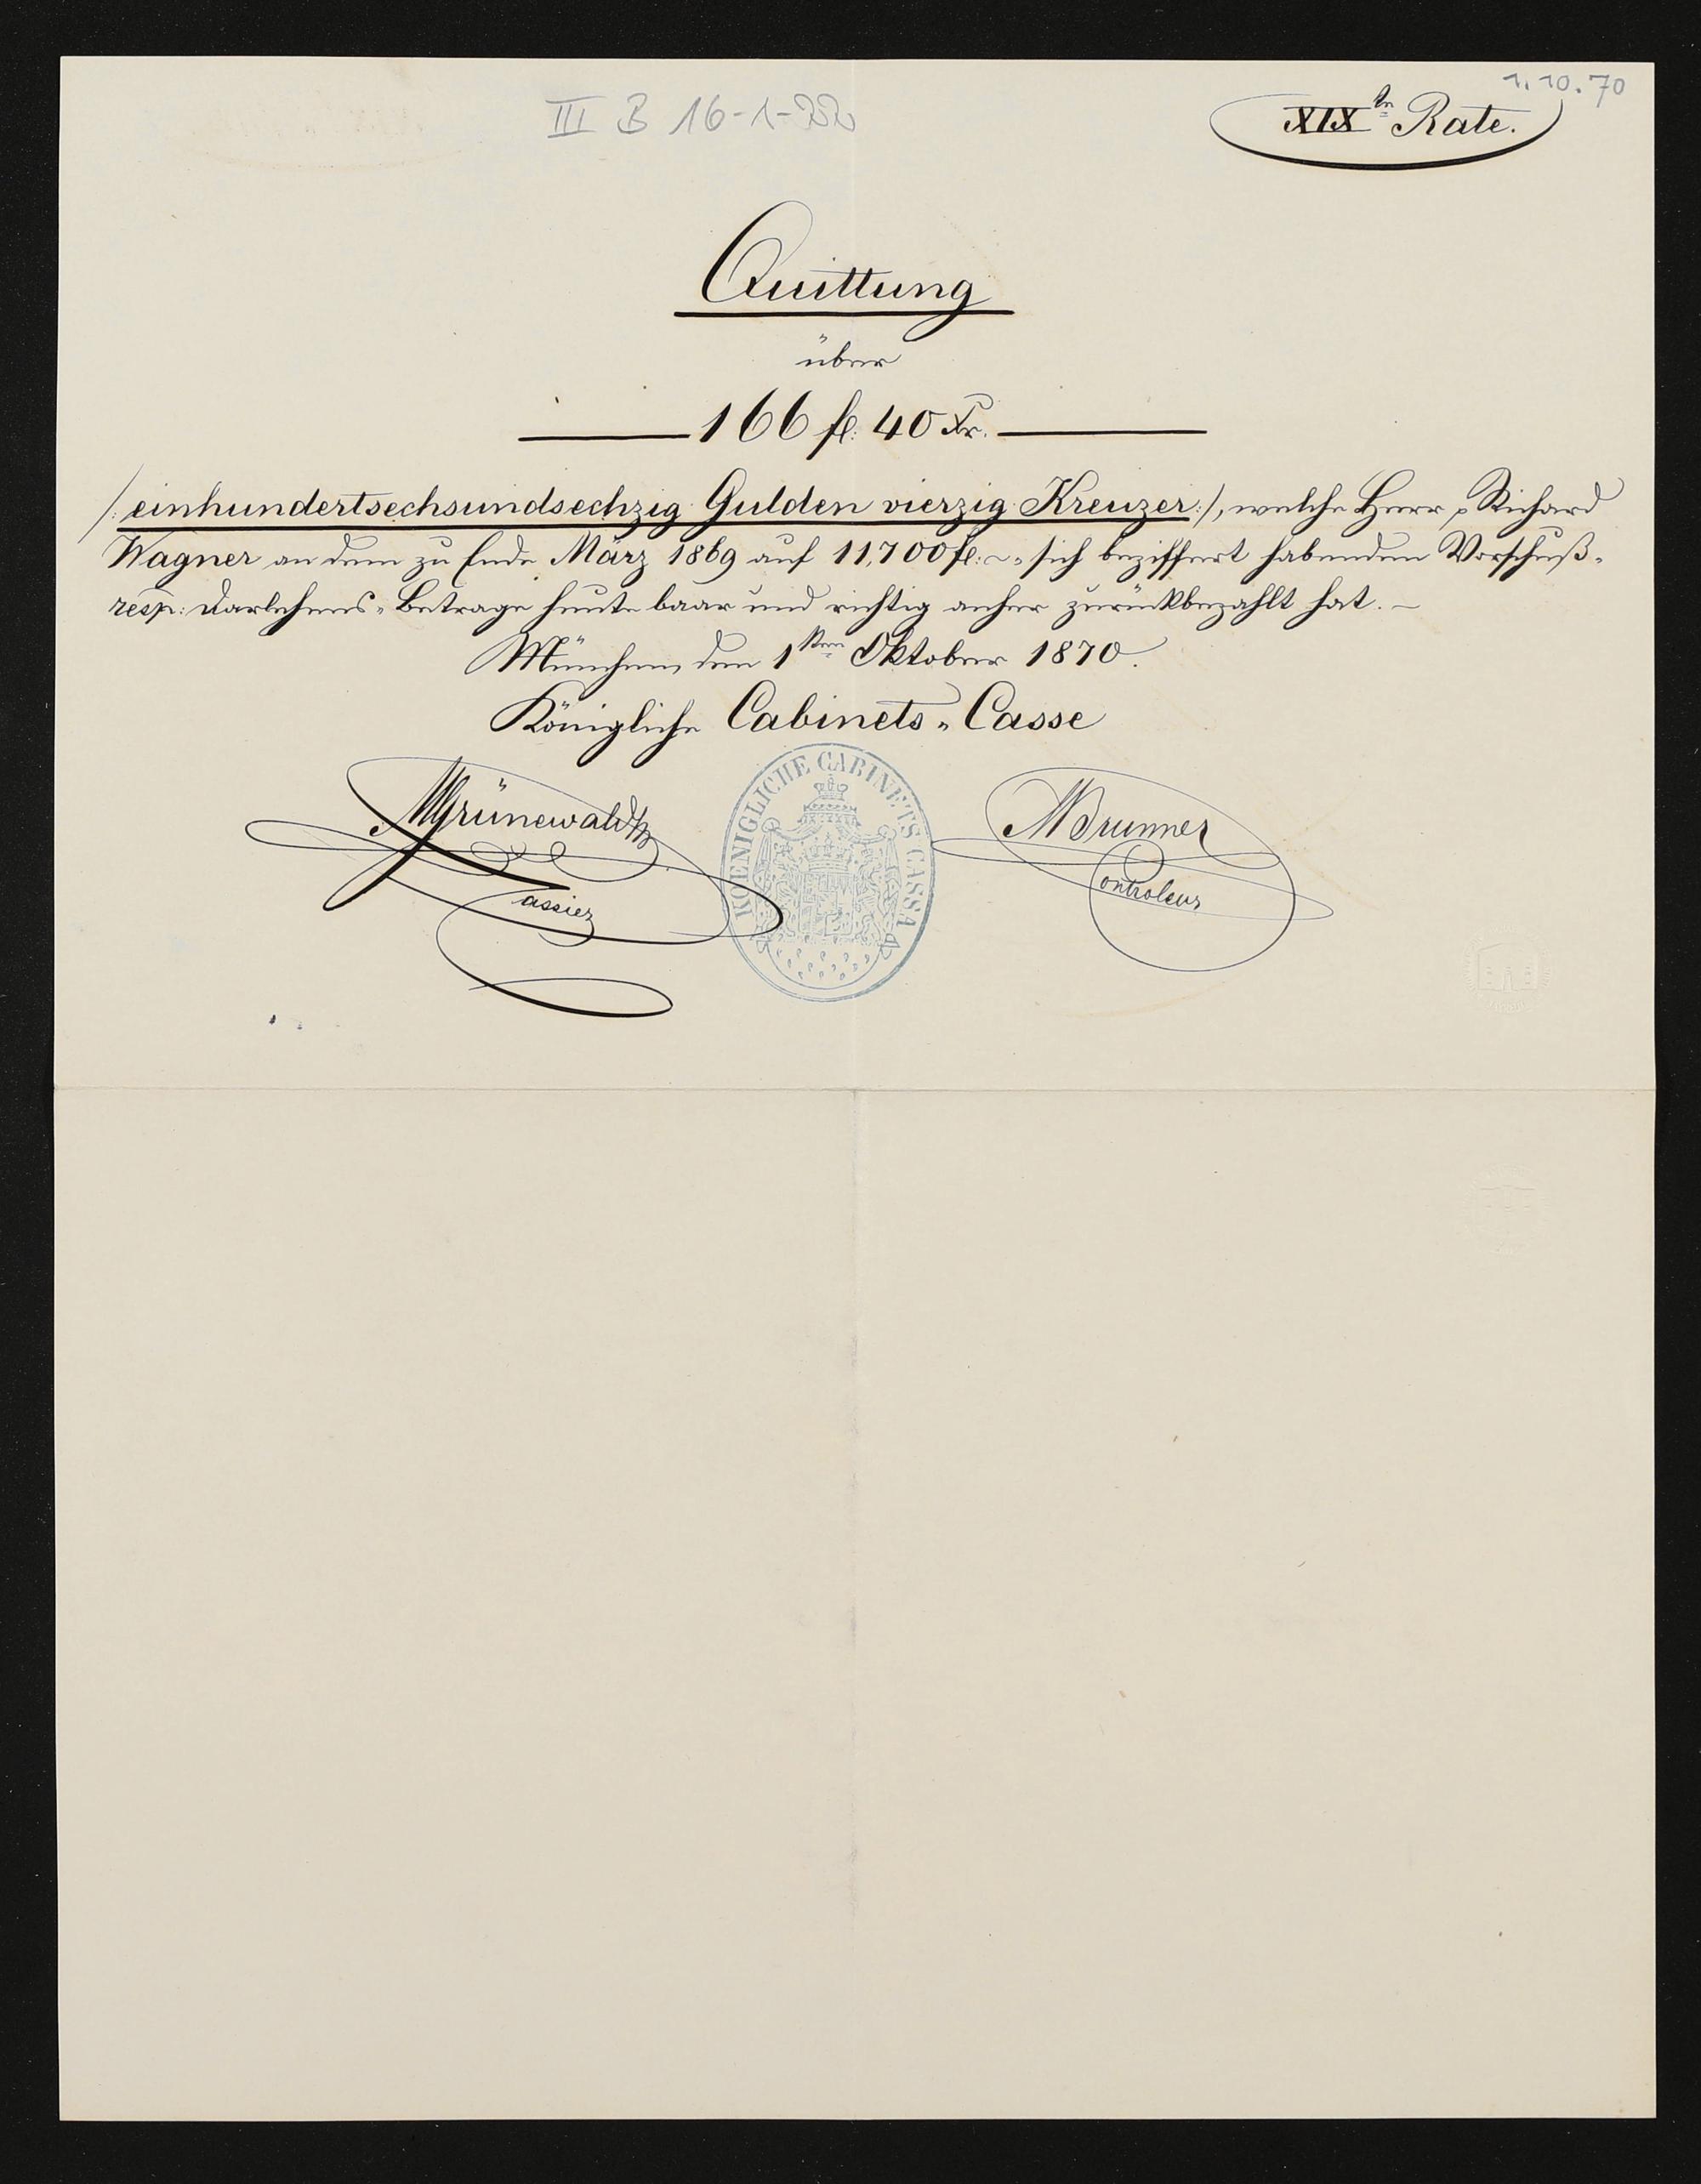 1.10.70
III B 16-1-22
XIX te Rate.
Quittung
über
166 fl. 40 Xr.
/: einhundertsechsundsechzig Gulden vierzig Kreuzer :/, welche Herr Richard
Wagner an dem zu Ende März 1869 auf 11,700 fl: ~ sich beziffert habenden Vorschuß-
resp: Darlehens-Betrage heute baar und richtig anher zurückbezahlt hat. –
München, den 1sten Oktober 1870.
Königliche Cabinets-Casse
MGrünewald
Cassier
KOENIGLICHE CABINETS CASSA
MBrunner
Controleur